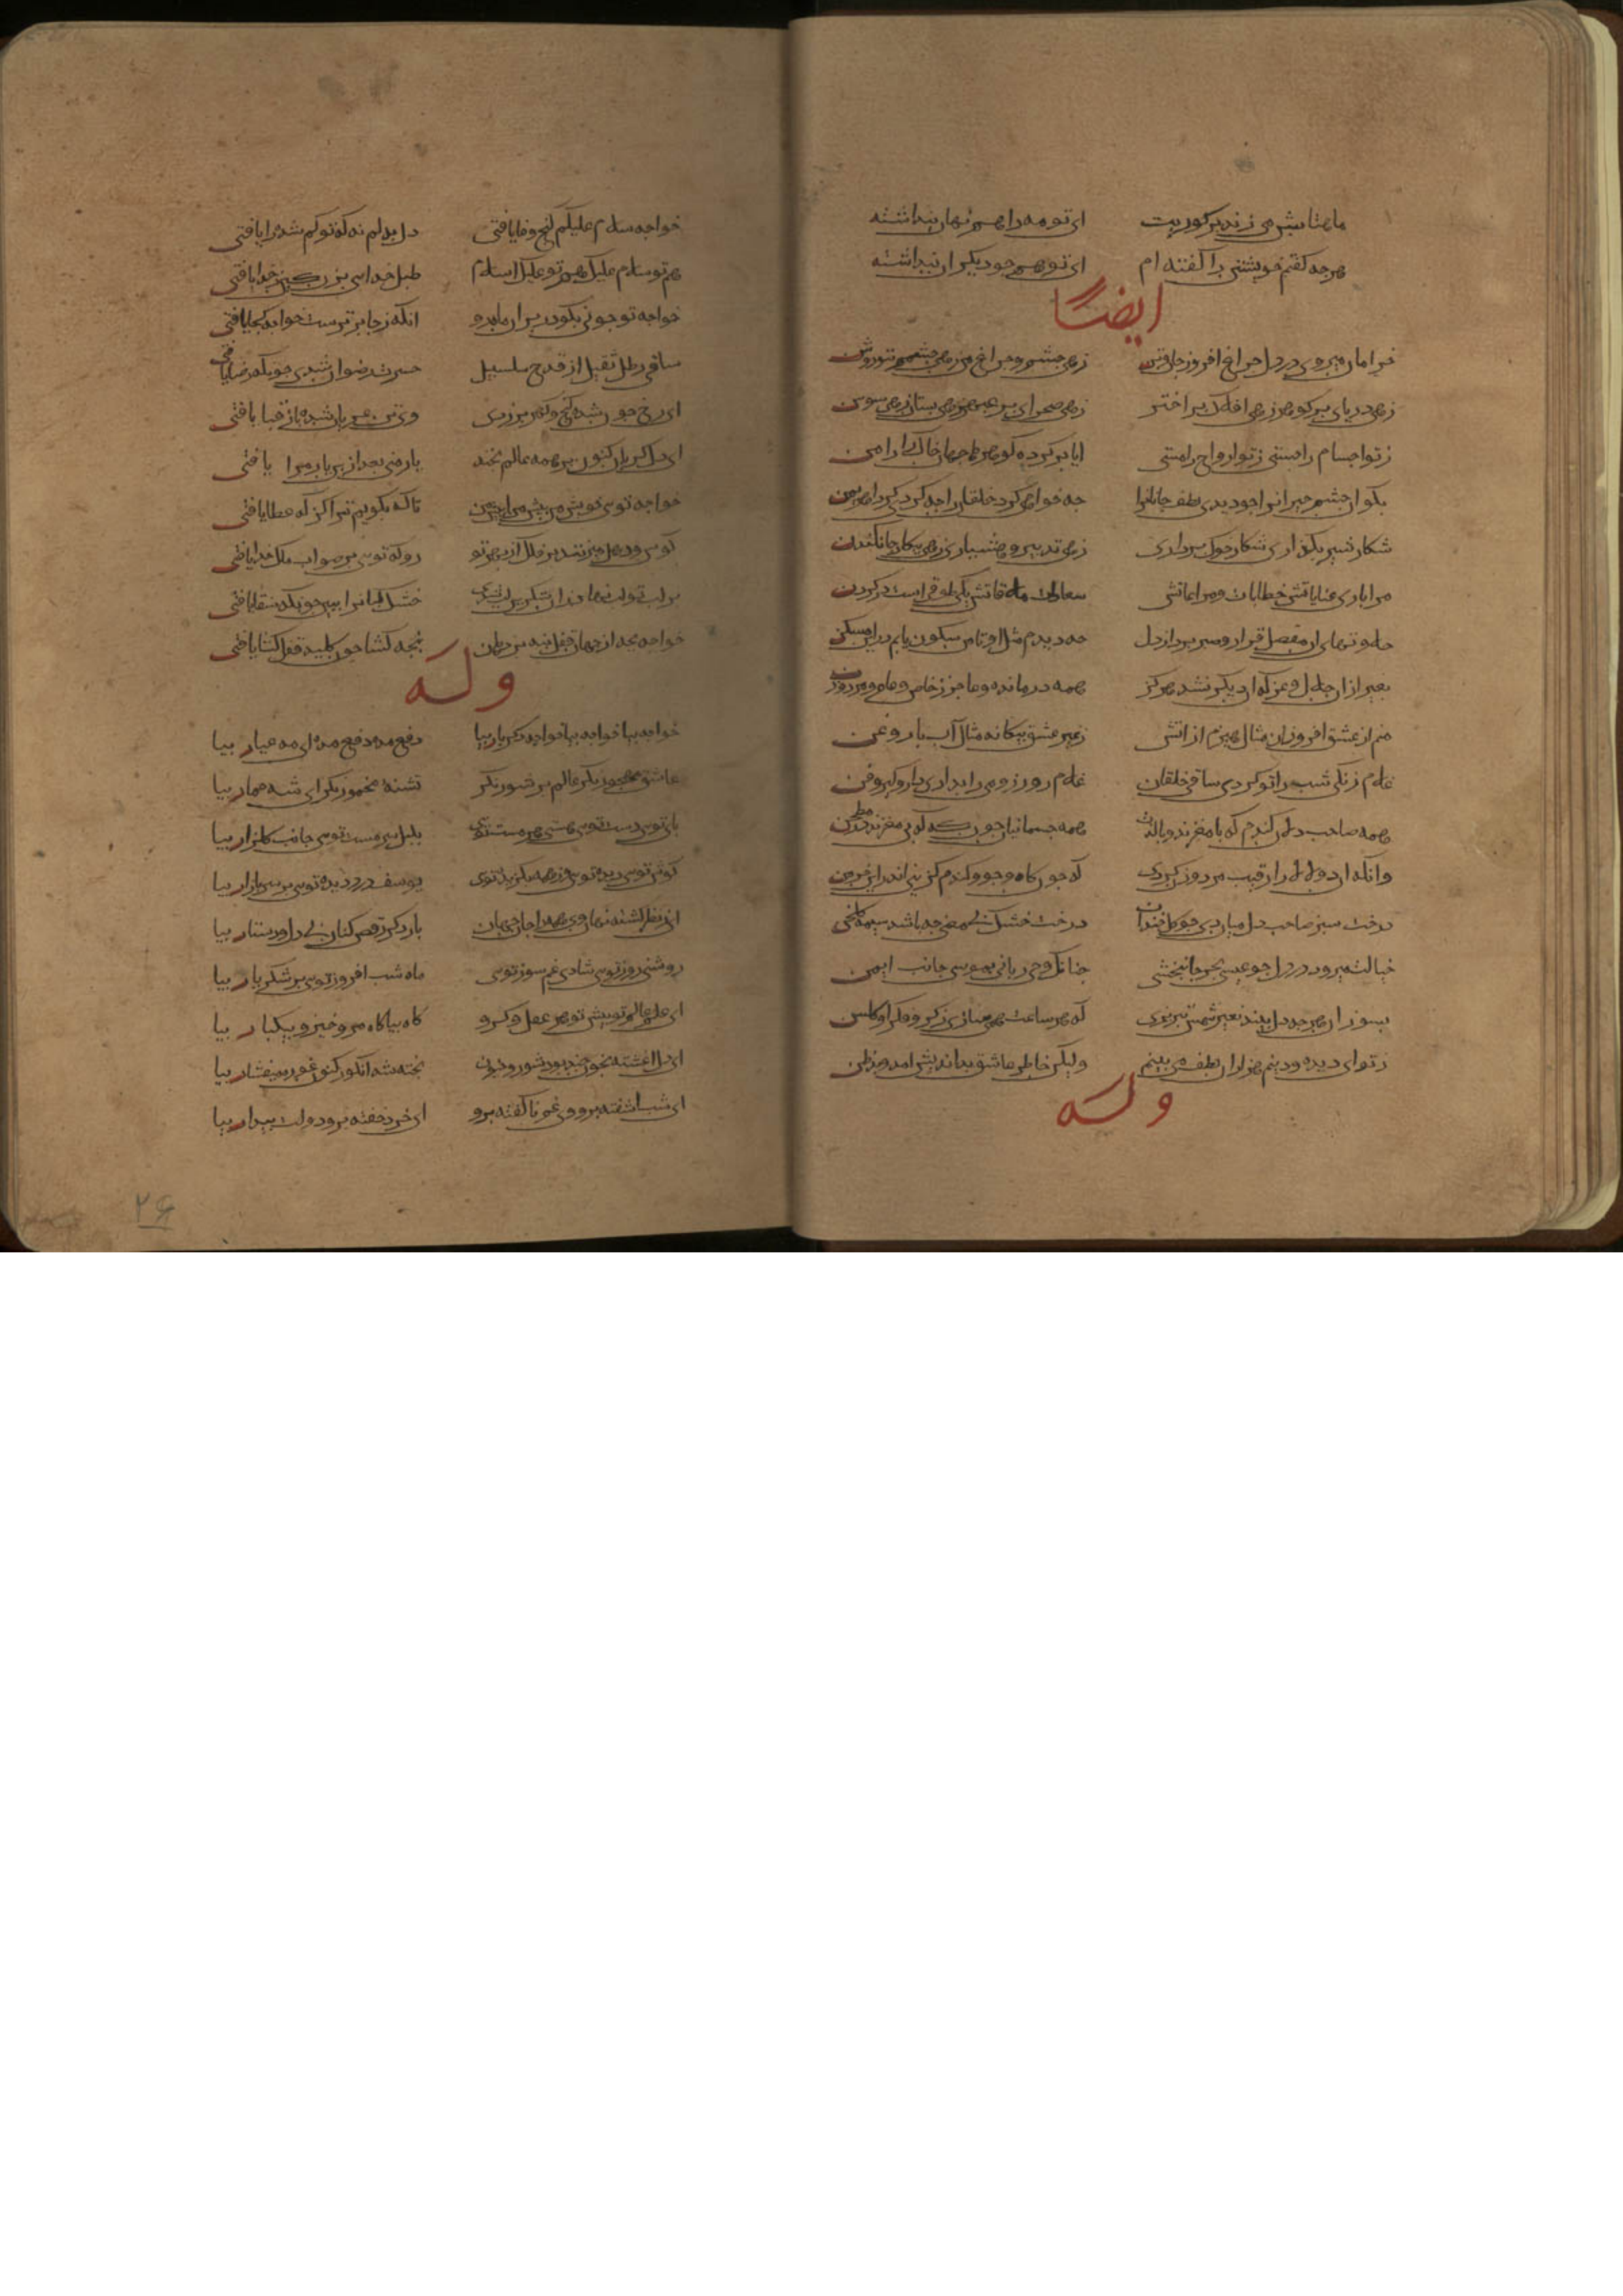 ماهتابش می زند بر کوریت ای تو مه را هم نهان پنداشته
هرچه گفتم خویشتن را گفته ام ای تو هم چو دیگران پنداشته
ایضا
خرامان میروی در دل چراغ افروز جان و تن زهی چشم و چراغ من زهی چشمم بتو روشن
زهی دریای پر کوهر زهی افلاک پر اختر زهی صحرای پر عبهر زهی بستان پر سوسن
ز تو اجسام را چستی ز تو ارواح را مستی ایا پر کرده کوهرها جهان خاک را دامن
بکو ای چشم حیران را چو دیدی لطف جانان را چه خواهی کرد خلقان را چه کردی کرد اهریمن
شکار شیر بکذاری شکار خوک برداری زهی تدبیر و هشیاری زهی بیکار و جان کندن
مرا باری عنایاتش خطابات و مراعاتش سعادات ملاقاتش یکی طوقی است در کردن
حلاوتهای آن مفضل قرار و صبر برد از دل که دیدم مثل او تا من سکون یابم در این مسکن
بغیر از آن جلال و عز که او دیکر نشد هرکز همه درمانده و عاجز ز خاص و عام و مرد و زن
منم از عشق افروزان مثال هیزم از آتش ز غیر عشق بیکانه مثال آب با روغن
غلام زنکی شب را تو کردی ساقی خلقان غلام روز رومی را بدادی دار و کیر و فن
همه صاحب دلان کندم که بامغزند و بالذت همه جسمانیان چون که که بی مغزند در مطحن
درخت سبز صاحب دل میان دی چو کل خندان درخت خشک بی معنی چه باشد هیمه کلخن
خیالت میرود در دل چو عیسی بهر جان بخشی چنانک وحی ربانی بموسی جانب ایمن
بسوزان هرچه دل بیند بغیر شمس تبریزی که هر ساعت همی سازی ز کر و فکر او کلشن
ز تو ای دیده و دینم هزاران لطف می بینم ولیکن خاطر عاشق بداندیش آمد و بدظن
وله
خواجه سلام علیکم کنج وفا یافتی دل بدلم نه که تو کم شده را یافتی
هم تو سلام علیک هم تو علیک السلام طبل خدایی بزن کین ز خدا یافتی
خواجه تو چونی بکو در بر آن ماه رو آنکه ز جا برترست خواجه کجا یافتی
ساقی رطل ثقیل از قدح سلسبیل حسرت رضوان شدی چونکه رضا یافتی
ای رخ چون زر شده کنج و کهر بر زدی وی تن عریان شده باز قبا یافتی
ای دل کریان کنون بر همه عالم بخند یار منی بعد از این یار مرا یافتی
خواجه توی خویش من پیش من آ پیش من تا که بکویم ترا کز که عطا یافتی
کوس و دهل میزنند بر فلک از بهر تو رو که توی بر صواب ملک خدا یافتی
بر لب تو لب نهاد زان شکرین لب شدی خشک لبانرا ببین چونکه سقا یافتی
خواجه بجه از جهان قفل بنه بر دهان پنجه کشا چون کلید قفل کشا یافتی
وله
خواجه بیا خواجه بیا خواجه دکر بار بیا دفع مده دفع مده ای مه عیار بیا
عاشق مهجور نکر عالم پر شور نکر تشنه مخمور نکر ای شه خمار بیا
پای توی دست توی هستی هر هست توی بلبل سرمست توی جانب کلزار بیا
کوش توی دیده توی وز همه بکزیده توی یوسف دزدیده توی بر سر بازار بیا
ای ز نظر کشته نهان وی همه را جان جهان بار دکر رقص کنان بی دل و دستار بیا
روشنی روز توی شادی غم سوز توی ماه شب افروز توی ابر شکربار بیا
ای علم عالم نو پیش تو هر عقل کرو کاه بیا کاه مرو خیز و بیکبار بیا
ای دل آغشته بخون چند بود شور و جنون پخته شد انکور کنون غوره میفشار بیا
ای شب آشفته برو وی غم ناکفته برو ای خرد خفته برو دولت بیدار بیا
۲۶